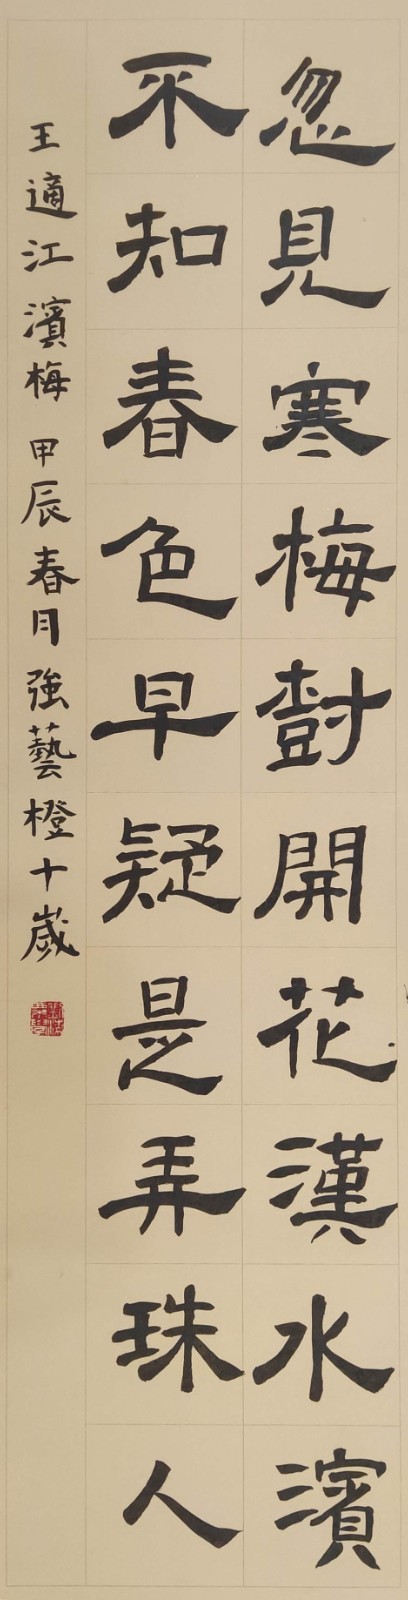 忽見寒梅樹開花漢水濱
不知春色早疑是弄珠人
王適江濱梅 甲辰春月強藝橙十歲